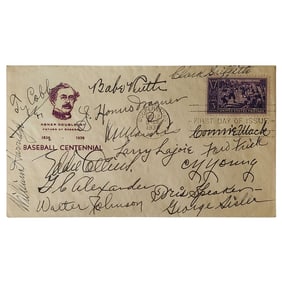 ABNER DOUBLEDAY
FATHER OF BASEBALL
1839 1939
BASEBALL CENTENNIAL
Ty Cobb
Babe Ruth
Clark Griffith
Honus Wagner
Connie Mack
FIRST DAY OF ISSUE
Larry Lajoie
Eddie Collins
Cy Young
G. C. Alexander
Tris Speaker
Walter Johnson
George Sisler